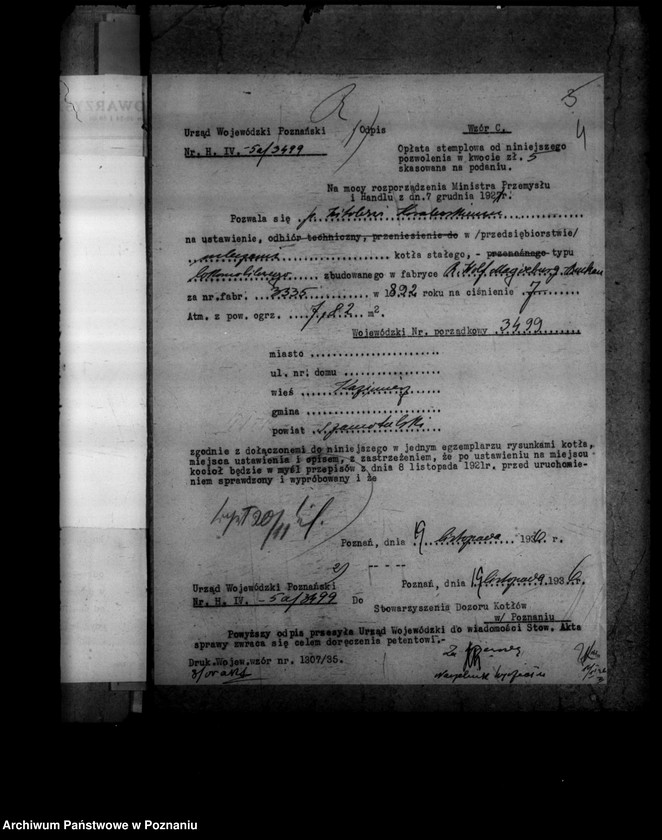 5
4
Urząd Wojewódzki Poznański Odpis Wzór C.
Nr. H. IV. -5a/3499
Opłata stemplowa od niniejszego
pozwolenia w kwocie zł. 5
skasowana na podaniu.
Na mocy rozporządzenia Ministra Przemysłu
i Handlu z dn.7 grudnia 1927r.
Pozwala się p.
na ustawienie, odbiór techniczny, przeniesienie do w /przedsiębiorstwie/
kotła stałego, - przenośnego typu
lokomobilowego zbudowanego w fabryce R. Wolf, Magdeburg-Buckau
za nr.fabr. 3335 w 1892 roku na ciśnienie 7
Atm. z pow. ogrz. 7,82 m2.
Wojewódzki Nr. porządkowy 3499
miasto
ul. nr: domu
wieś Kazimierz
gmina
powiat Szamotulski
zgodnie z dołączonemi do niniejszego w jednym egzemplarzu rysunkami kotła,
miejsca ustawienia i opisem, z zastrzeżeniem, że po ustawieniu na miejscu
kocioł będzie w myśl przepisów z dnia 8 listopada 1921r. przed uruchomie-
niem sprawdzony i wypróbowany i że
Poznań, dnia 19 listopada 1936 r.
Urząd Wojewódzki Poznański Poznań, dnia 19 listopada 1936 r.
Nr. H. IV. -5a/3499 Do
Stowarzyszenis Dozoru Kotłów
w/ Poznaniu
Powyższy odpis przesyła Urząd Wojewódzki do wiadomości Stow. Akta
sprawy zwraca się celem doręczenia petentowi.-
Za
Naczelnik Wydziału
Druk.Wojew.wzór nr. 1307/35.
Archiwum Państwowe w Poznaniu